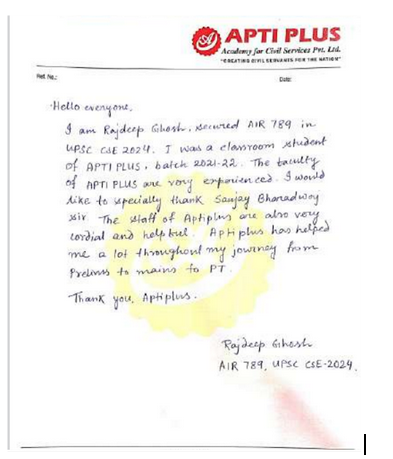 APTI PLUS
Academy for Civil Services Pvt. Ltd.
"CREATING CIVIL SERVANTS FOR THE NATION"
Ref. No.: Date:
Hello everyone,
I am Rajdeep Ghosh, secured AIR 789 in
UPSC CSE 2024. I was a classroom student
of APTI PLUS, batch 2021-22. The faculty
of APTI PLUS are very experienced. I would
like to specially thank Sanjay Bharadwaj
sir. The staff of Aptiplus are also very
cordial and helpful. Aptiplus has helped
me a lot throughout my journey from
Prelims to mains to PT.
Thank you, Aptiplus.
Rajdeep Ghosh
AIR 789, UPSC CSE-2024.